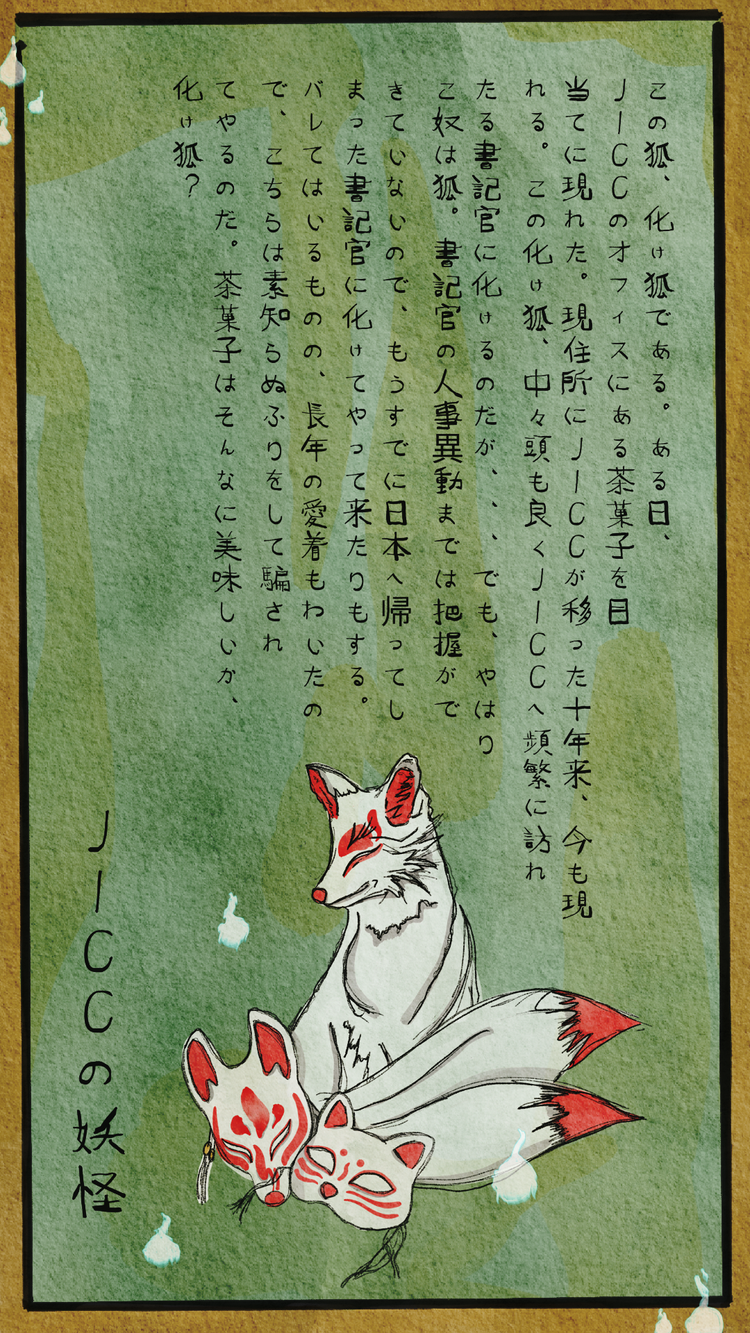 この狐、化け狐である。ある日、
JICCのオフィスにある茶菓子を目
当てに現れた。現住所にJICCが移った十年来、今も現
れる。この化け狐、中々頭も良くJICCへ頻繁に訪れ
たる書記官に化けるのだが、、、でも、やはり
こ奴は狐。書記官の人事異動までは把握がで
きていないので、もうすでに日本へ帰ってし
まった書記官に化けてやって来たりもする。
バレてはいるものの、長年の愛着もわいたの
で、こちらは素知らぬふりをして騙され
てやるのだ。茶菓子はそんなに美味しいか、
化け狐？
JICCの妖怪